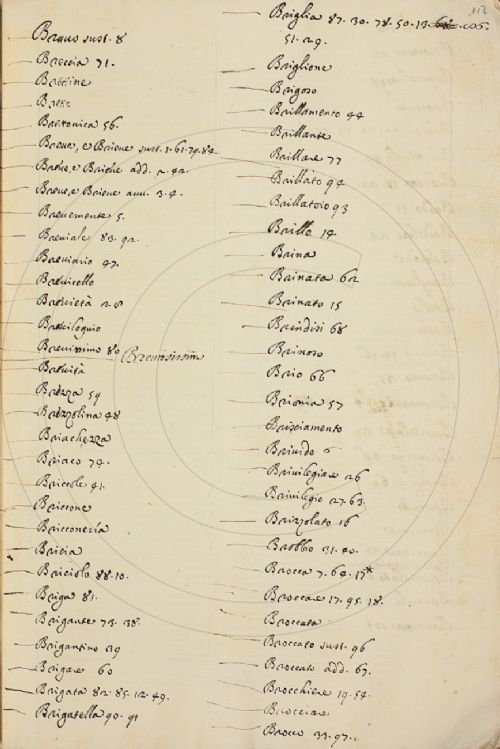 112
Bravo sust. 8
Breccia 71.
Brettine
Breve, e Brieve sust. 1. 61. 79. 84.
Brettonica 56.
Breve, e Brieve add. 2. 42.
Breve, e Brieve avv. 3. 4.
Brevemente 5.
Breviale 83. 92.
Breviario 47.
Brevicello
Brevietà 28
Breviloquio
Brevissimo 80 Brevissimam
Brevità
Brezza 59
Brezzolina 48
Briachezza
Briaco 74.
Briccole 41.
Briccone
Bricconeria
Bricia
Briciolo 88. 10.
Briga 81.
Brigante 73. 38.
Brigantino 39
Brigare 60
Brigata 82. 85. 12. 49.
Brigatella 90. 91
Briglia 87. 30. 78. 50. 13. 106.
51. 29.
Briglione
Brigoso
Brillamento 44
Brillante
Brillare 77
Brillato 94
Brillatoio 93
Brillo 14
Brina
Brinata 62
Brinato 15
Brindisi 68
Brinoso
Brio 66
Brionia 57
Brisciamento
Brivido 6
Brivilegiare 26
Brivilegio 27. 63.
Brizzolato 16
Brobbio 31. 40.
Brocca 7. 64. 17*
Broccare 17. 95. 18.
Broccata
Broccato sust. 96
Broccato add. 67.
Brocchiere 19. 54.
Brocciare
Brocco 33. 97.